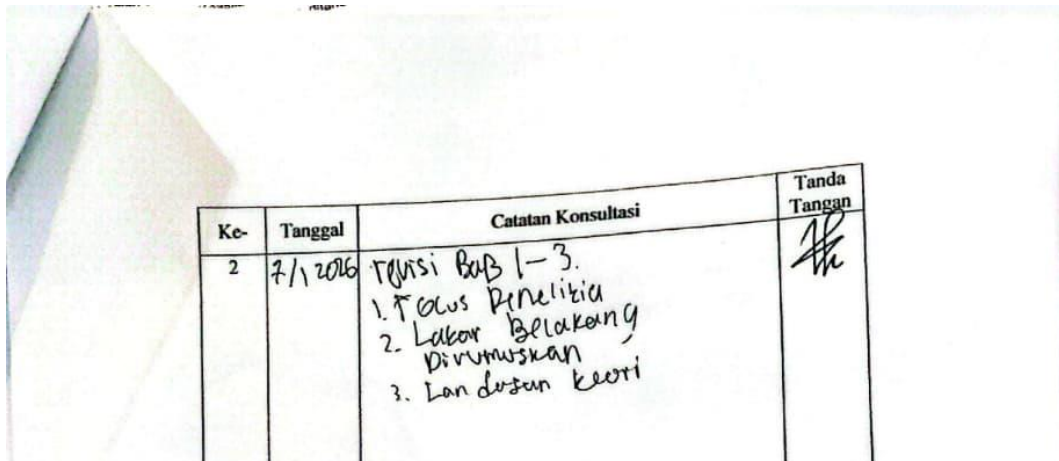 Ke- Tanggal Catatan Konsultasi Tanda Tangan
2 7/1 2026 revisi BaB 1-3.
1. Focus Penelitia
2. Latar Belakang
Dirumuskan
3. Landasan teori